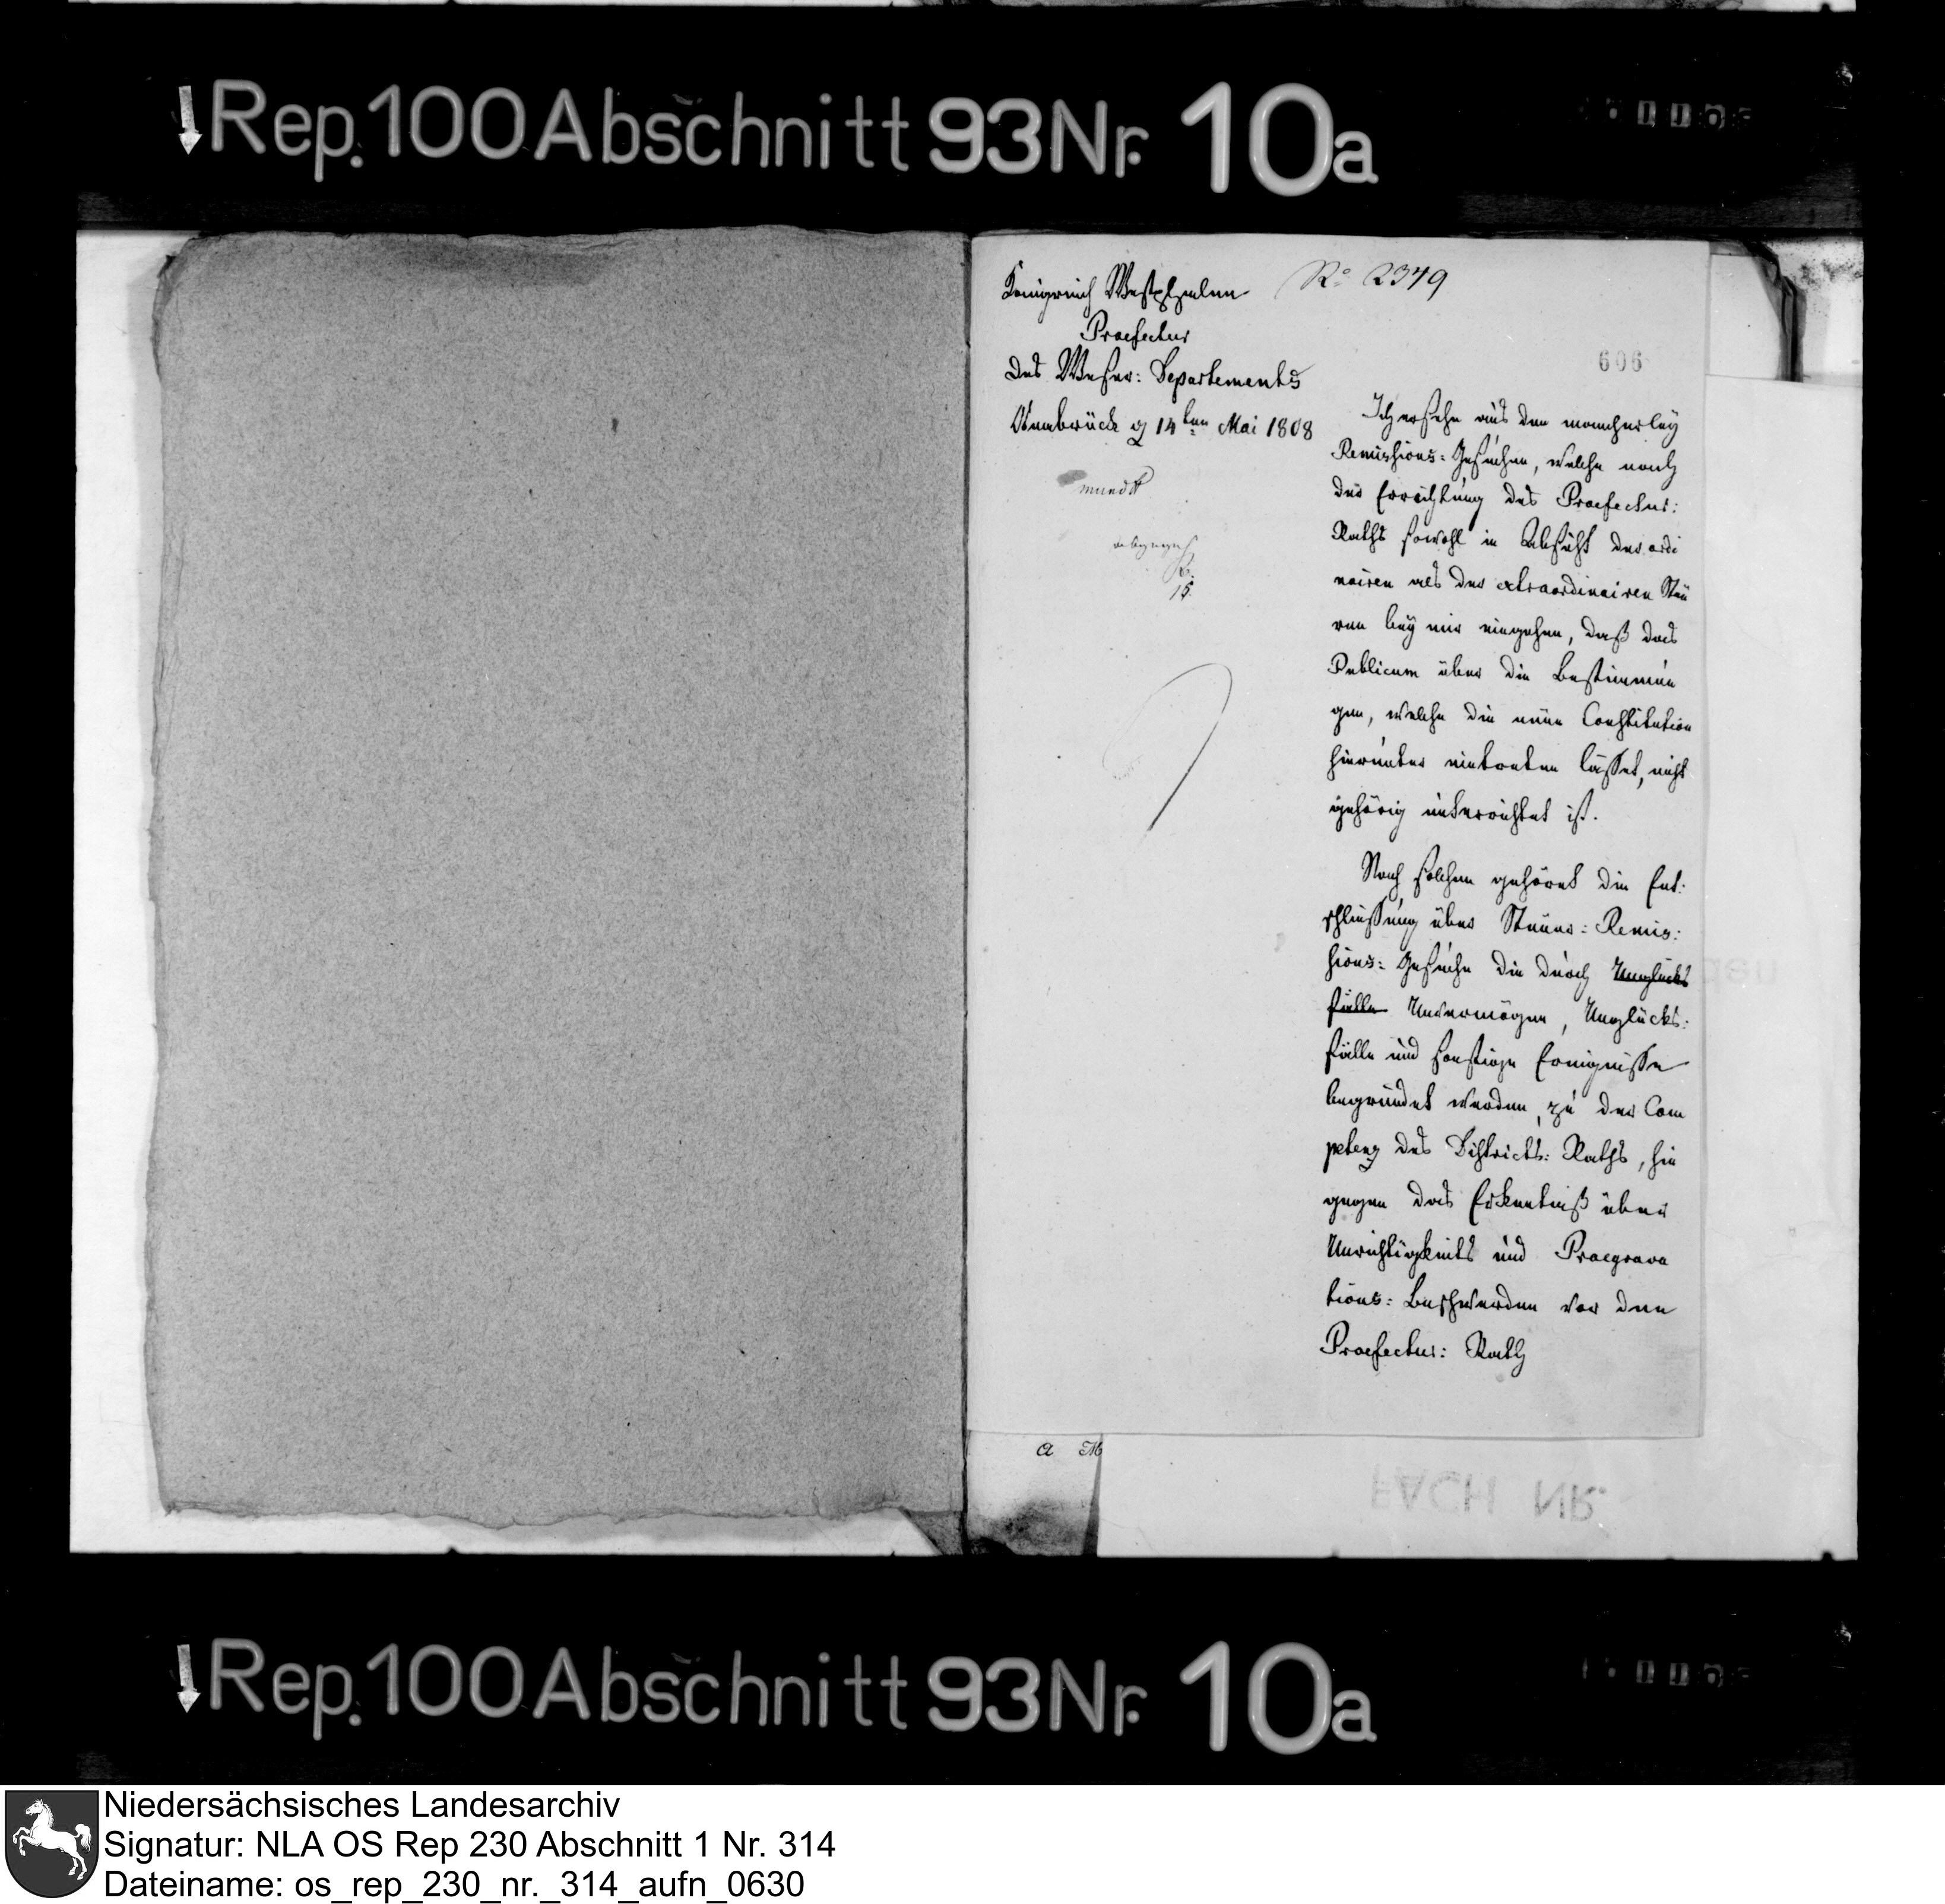 Rep. 100 Abschnitt 93 Nr. 10a
Königreich Westphalen
No 2349
Praefectur
des Weser: Departements
606
Osnabrück d 14ten Mai 1808
mundt
abgegeb
15
Ich ersehe aus den mancherley
Remissions: Gesuchen, welche nach
der Errichtung des Praefectur:
Raths sowohl in Absicht der ordi
nairen als der extraordinairen Steu
ren bey mir eingehen, daß das
Publicum über die Bestimmun
gen, welche die neue Constitution
hierunter eintreten lässet, nicht
gehörig unterrichtet ist.
Nach solchem gehöret die Ent:
schließung über Steuer: Remis:
sions: Gesuche die durch Unglücks
fälle Unvermögen, Unglücks:
fälle und sonstige Ereignisse
begründet werden, zu der Com
petenz des Districts: Raths, hin
gegen das Erkentniß über
Unrichtigkeits und Praegrava
tions: Beschwerden vor den
Praefectur: Rath
a M
FACH NR.
Rep. 100 Abschnitt 93 Nr. 10a
Niedersächsisches Landesarchiv
Signatur: NLA OS Rep 230 Abschnitt 1 Nr. 314
Dateiname: os_rep_230_nr._314_aufn_0630